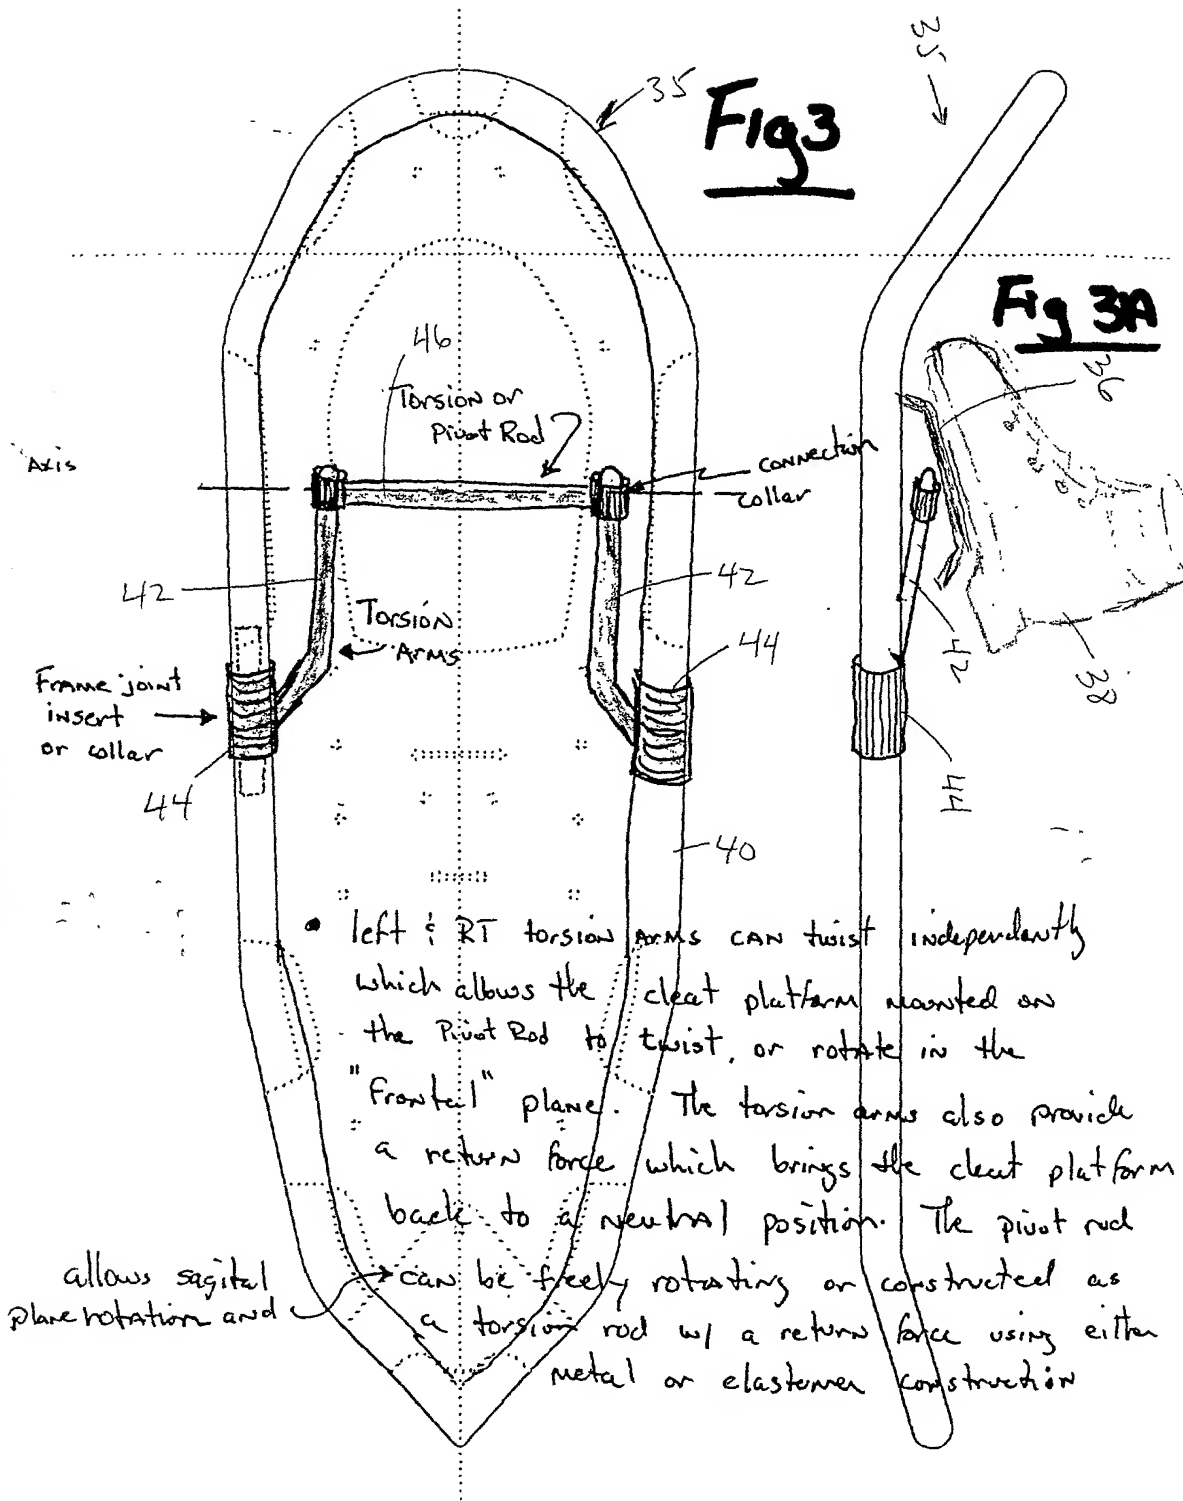 35
35
Fig 3
Fig 3A
36
46
Torsion or
Pivot Rod
connection
collar
Axis
42
42
Torsion
Arms
44
42
38
Frame joint
insert
or collar
44
44
40
• left & RT torsion Arms CAN twist independantly
which allows the cleat platform mounted on
the Pivot Rod to twist, or rotate in the
"Frontal" plane. The torsion arms also provide
a return force which brings the cleat platform
back to a neutral position. The pivot rod
allows sagital
plane rotation and
can be freely rotating or constructed as
a torsion rod w/ a return force using either
metal or elastomer construction